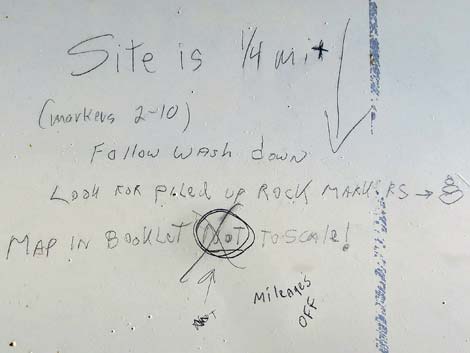 Site is 1/4 mi+
(markers 2-10)
Follow wash down
Look for piled up ROCK MARKERS →
MAP IN BOOKLET NOT TO SCALE!
Mileages
OFF